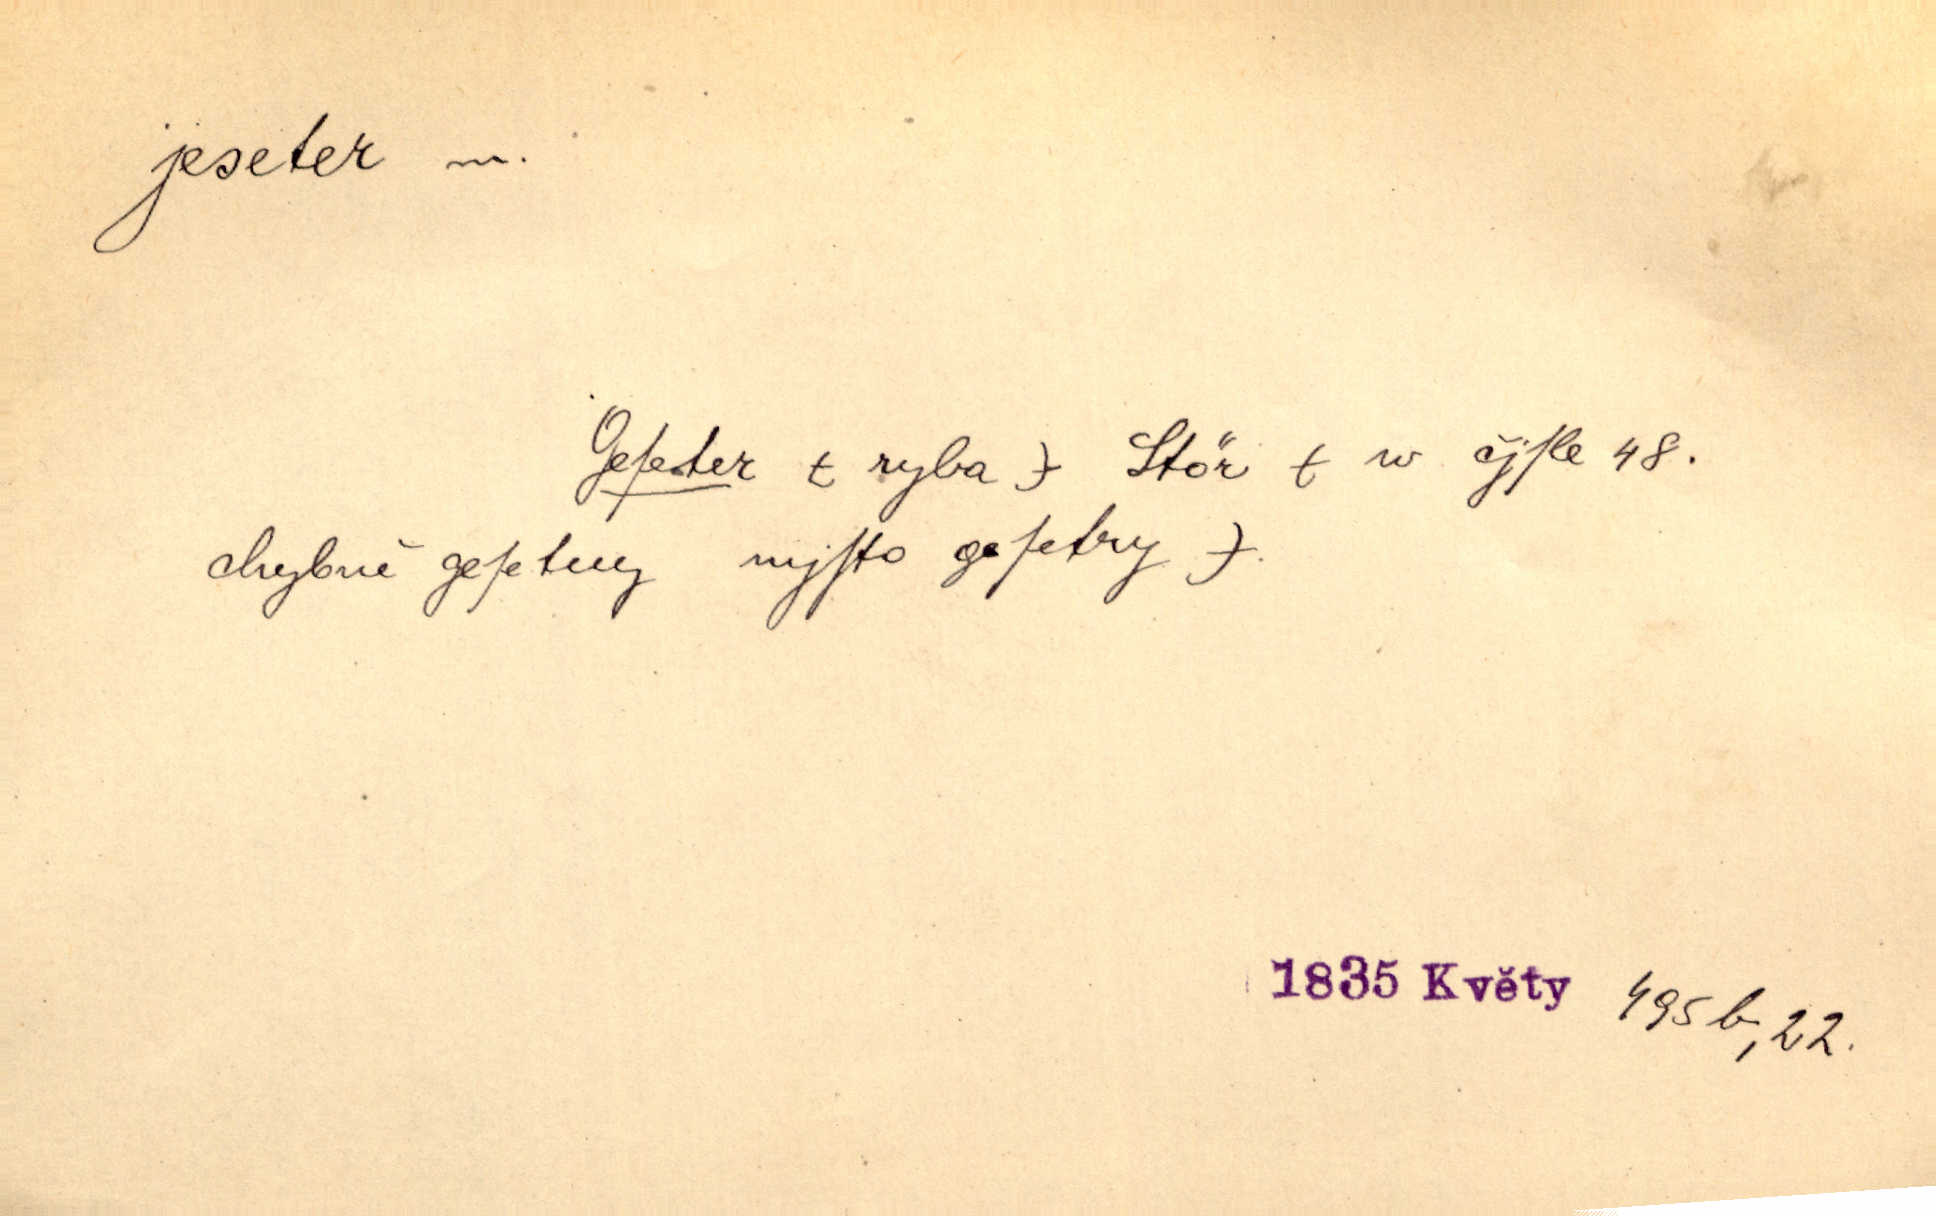 jeseter m.
Geſeter (ryba) Stör (w čjſle 48.
chybně geſetuy mjſto geſetry).
1835 Květy 495b,22.